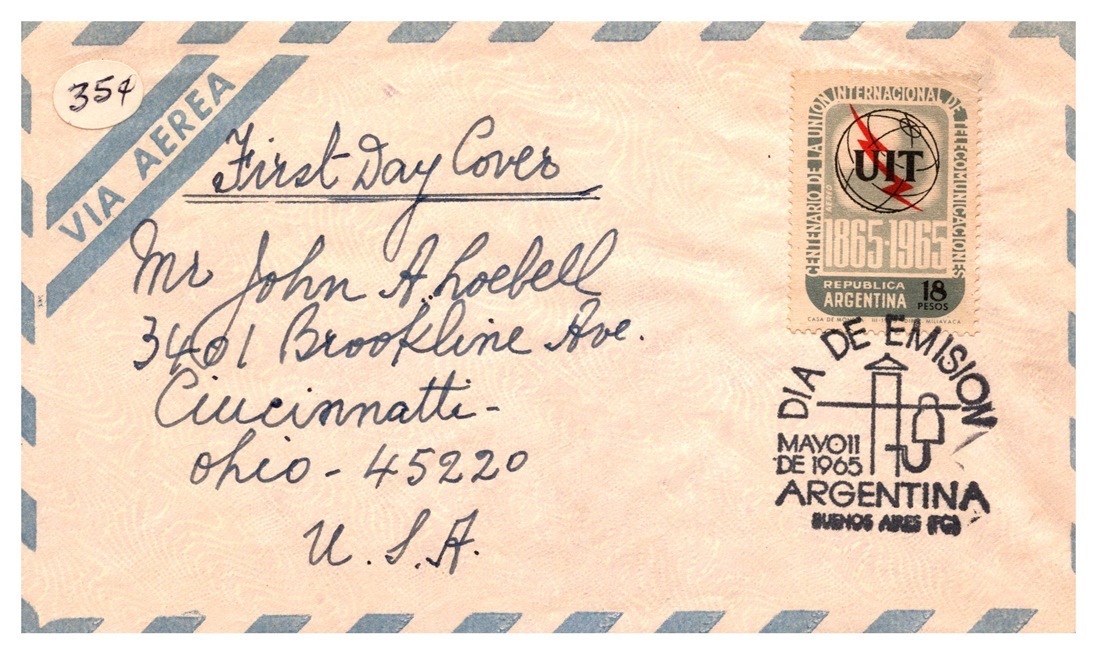 35¢
VIA AEREA
First Day Cover
Mr John A. Loebell
3401 Brookline Ave.
Cincinnatti -
Ohio - 45220
U. S. A.
CENTENARIO DE LA UNION INTERNACIONAL DE TELECOMUNICACIONES
UIT
AEREO
1865-1965
REPUBLICA
ARGENTINA
18
PESOS
CASA DE
DIA DE EMISION
MAYO 11
DE 1965
ARGENTINA
BUENOS AIRES